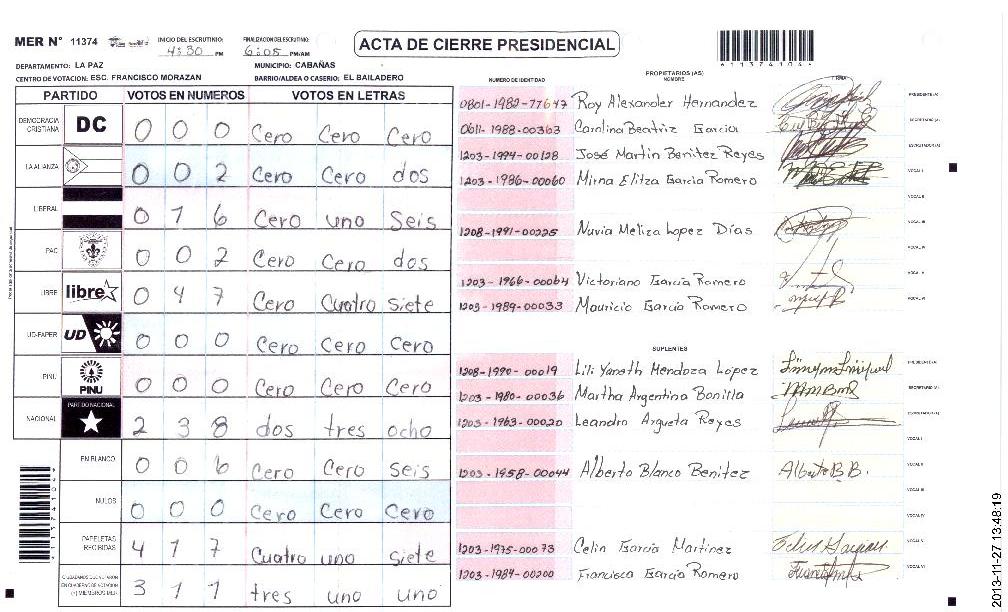 MER N° 11374 INICIO DEL ESCRUTINIO: 4:30 PM FINALIZACION DEL ESCRUTINIO: 6:05 PM/AM
ACTA DE CIERRE PRESIDENCIAL
DEPARTAMENTO: LA PAZ MUNICIPIO: CABAÑAS
CENTRO DE VOTACION: ESC. FRANCISCO MORAZAN BARRIO/ALDEA O CASERIO: EL BAILADERO
PARTIDO VOTOS EN NUMEROS VOTOS EN LETRAS
DEMOCRACIA CRISTIANA DC 0 0 0 Cero Cero Cero
LA ALIANZA 0 0 2 Cero Cero dos
LIBERAL 0 1 6 Cero uno Seis
PAC 0 0 2 Cero Cero dos
LIBRE libre 0 4 7 Cero Cuatro siete
UD-FAPER UD 0 0 0 Cero Cero Cero
PINU PINU 0 0 0 Cero Cero Cero
NACIONAL PARTIDO NACIONAL 2 3 8 dos tres ocho
EN BLANCO 0 0 6 Cero Cero seis
NULOS 0 0 0 Cero Cero Cero
PAPELETAS RECIBIDAS 4 1 7 Cuatro uno siete
CIUDADANOS QUE VOTARON EN CUADERNO DE VOTACION (+) MIEMBROS MER 3 1 1 tres uno uno
NUMERO DE IDENTIDAD PROPIETARIOS (AS) NOMBRE FIRMA
0801-1982-77647 Roy Alexander Hernandez PRESIDENTE (A)
0611-1988-00363 Carolina Beatriz Garcia SECRETARIO (A)
1203-1994-00128 José Martin Benitez Reyes ESCRUTADOR (A)
1203-1986-00060 Mirna Elitza Garcia Romero VOCAL I
VOCAL II
1208-1991-00225 Nuvia Meliza Lopez Días VOCAL III
VOCAL IV
1203-1966-00064 Victoriano Garcia Romero VOCAL V
1203-1989-00033 Mauricio Garcia Romero VOCAL VI
SUPLENTES
1208-1990-00019 Lili Yaneth Mendoza Lopez PRESIDENTE (A)
1203-1980-00036 Martha Argentina Bonilla SECRETARIO (A)
1203-1963-00020 Leandro Argueta Reyes ESCRUTADOR (A)
VOCAL I
1203-1958-00044 Alberto Blanco Benitez Alberto B.B. VOCAL II
VOCAL III
VOCAL IV
1203-1975-00073 Celin Garcia Martinez VOCAL V
1203-1984-00200 Francisca Garcia Romero VOCAL VI
2013-11-27 13:48:19